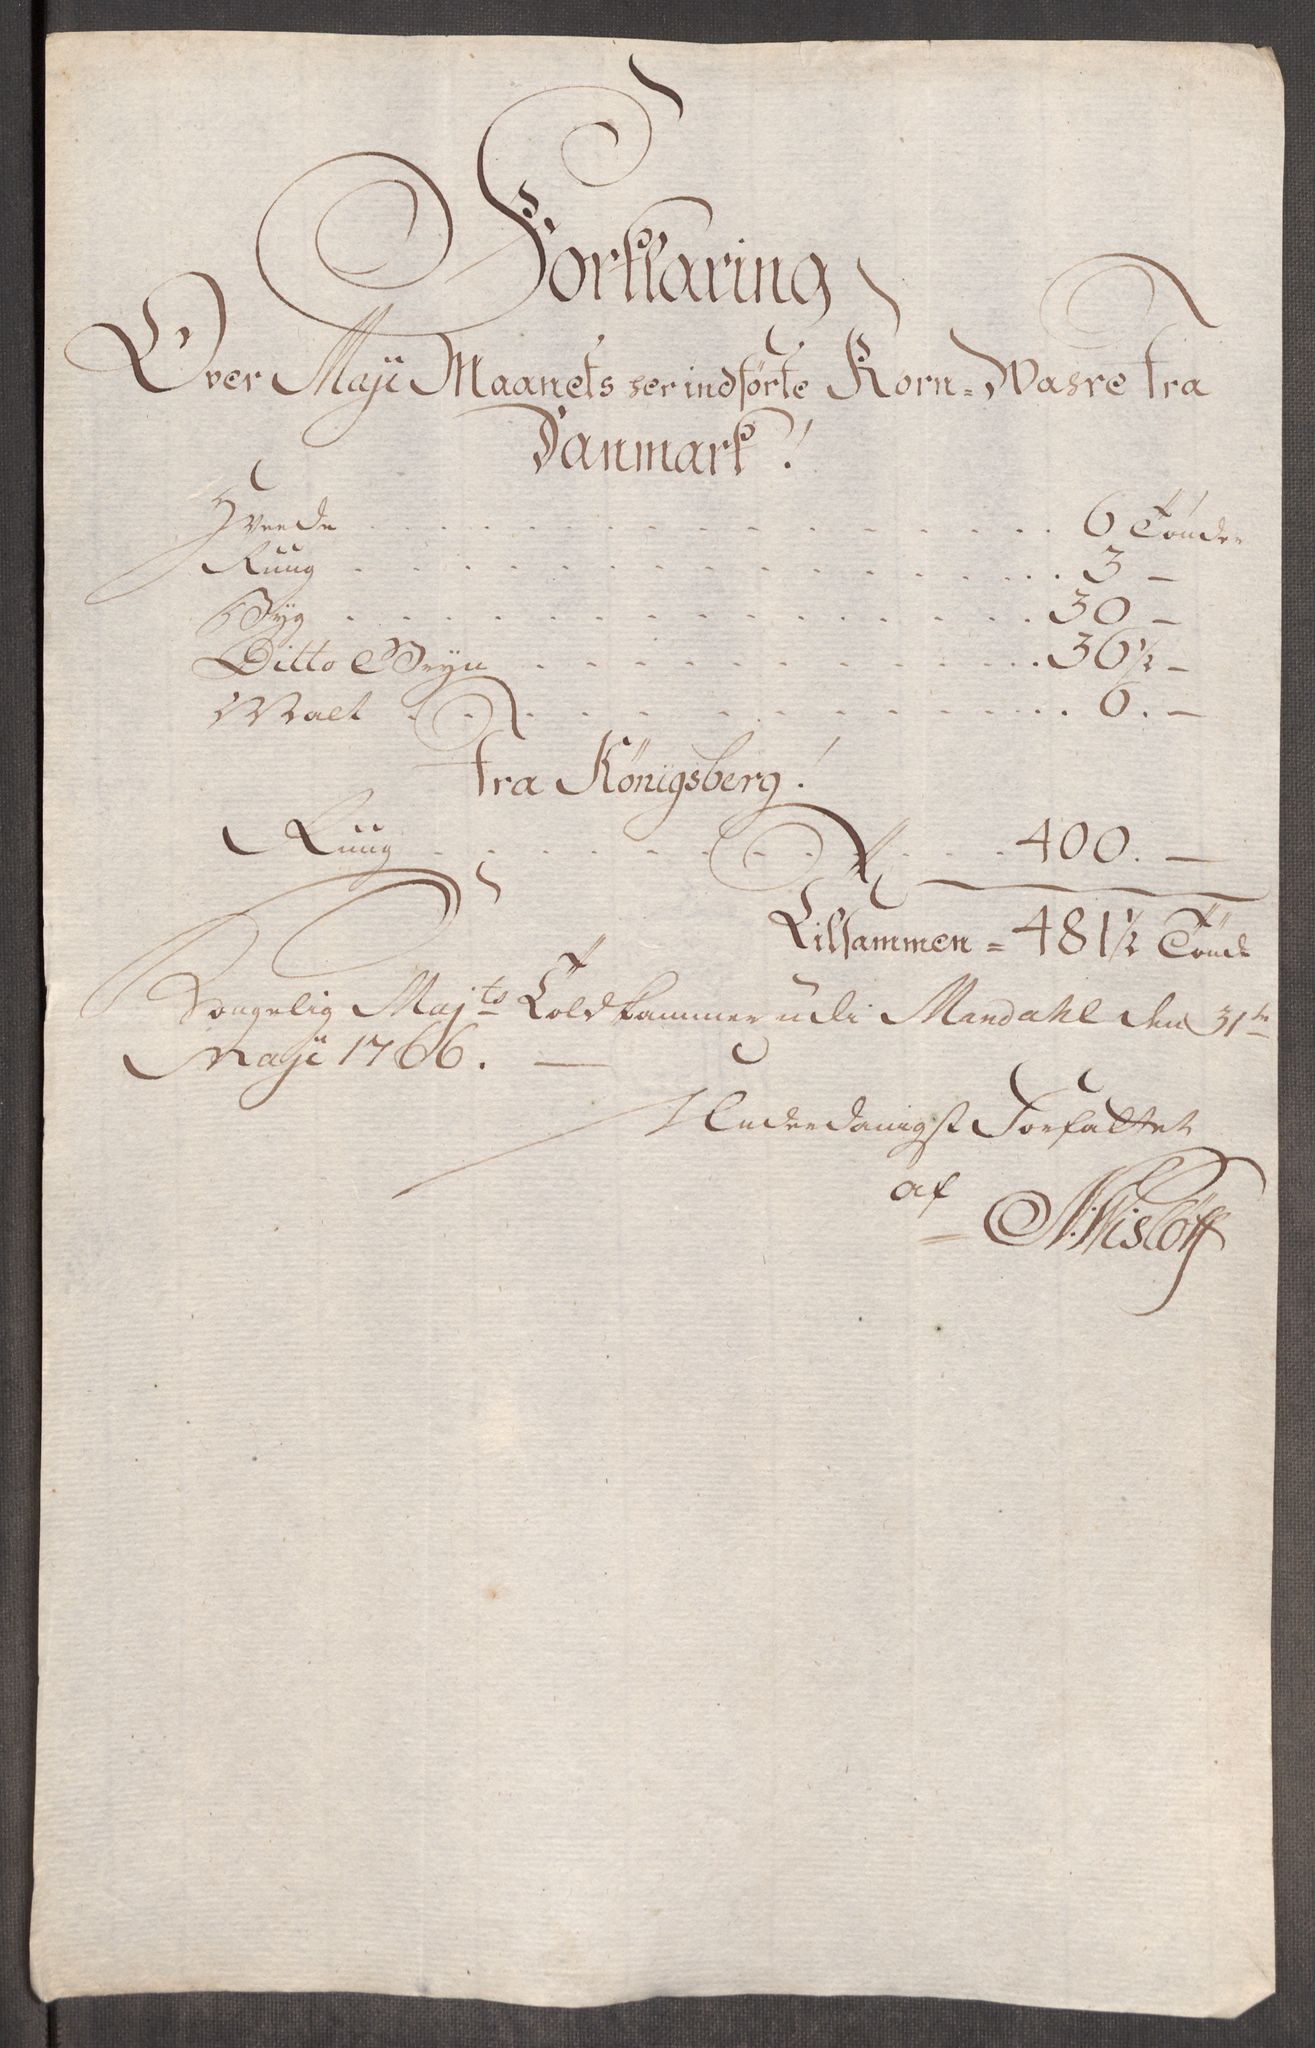 Forklaring
Over Maji Maanets her indførte Korn=Wahre fra
Danmark!
Hveede . . . 6 Tønder
Ruug . . . 3 —
Byg . . . 30 —
Ditto Gryn . . . 36½ —
Malt . . . 6. —
Fra Königsberg!
Ruug . . . 400. —
Tilsammen = 481½ Tønde
Kongelig Majts Toldkammer udi Mandahl den 31te
Maji 1766. —
Underdanigst Forfattet
af
N: Wisløff